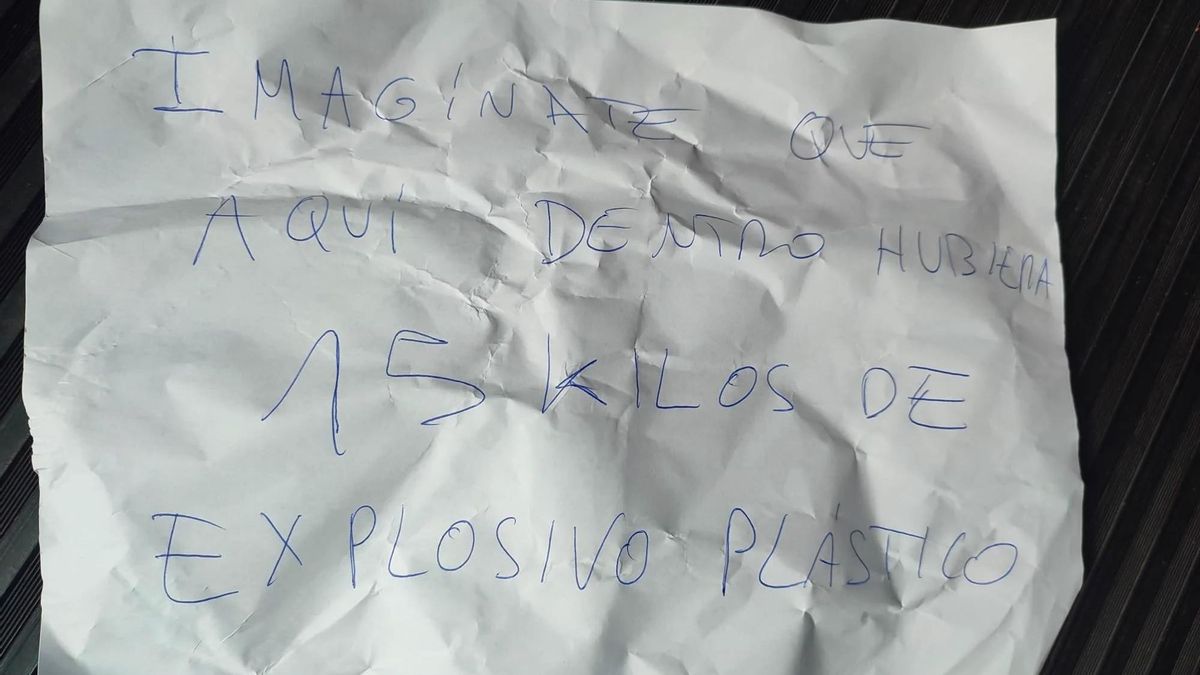 IMAGÍNATE QUE
AQUÍ DENTRO HUBIERA
15 KILOS DE
EXPLOSIVO PLÁSTICO